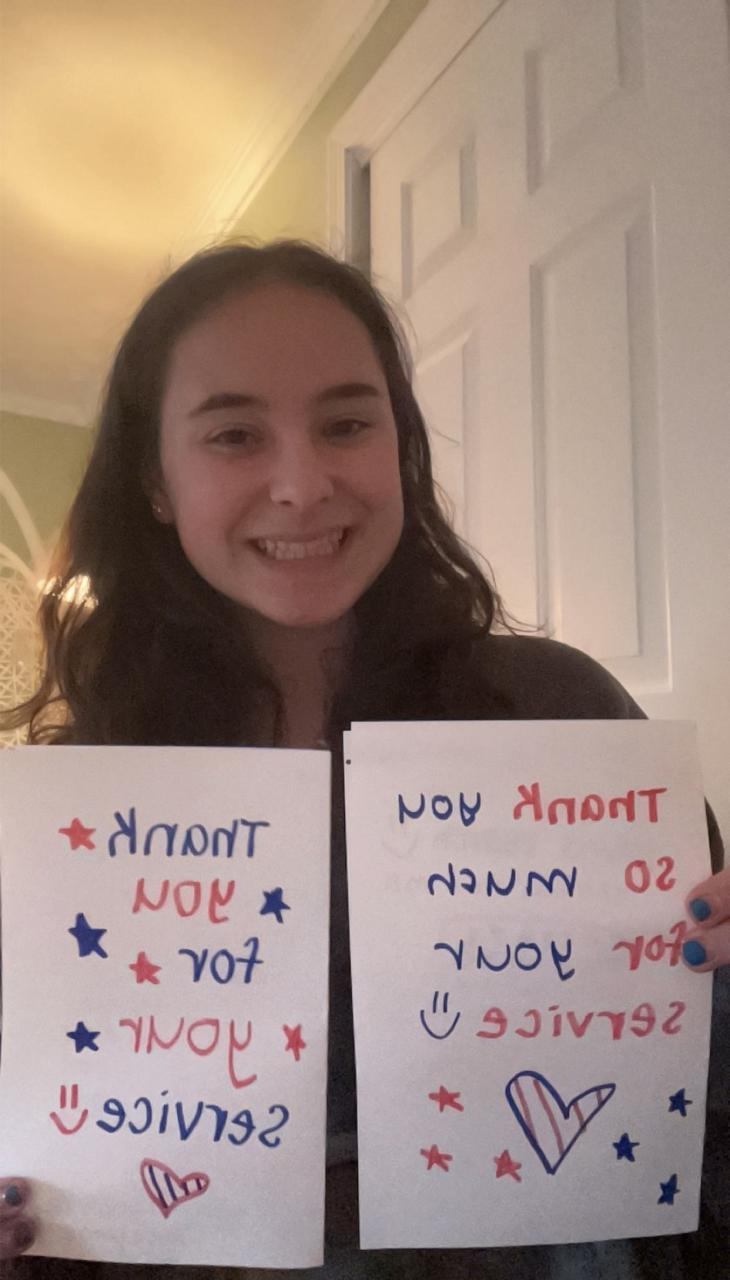 Thank
you
for
your
service
Thank you
so much
for your
service